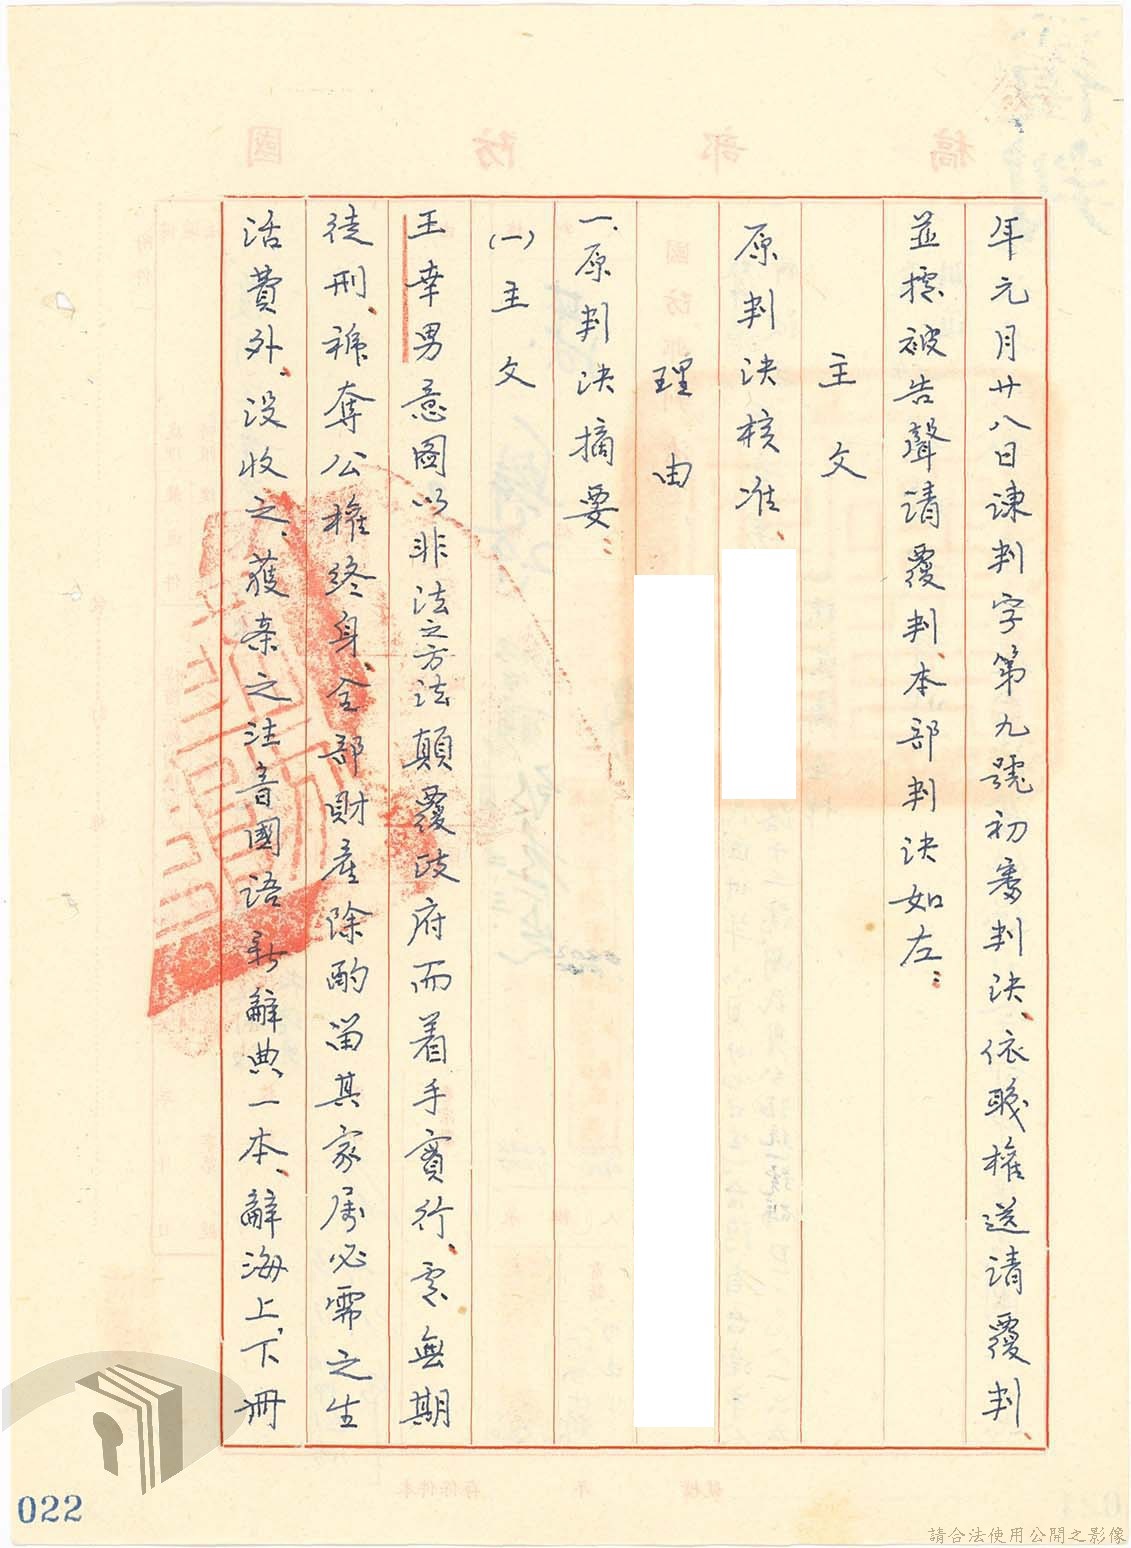 年元月廿八日諫判字第九號初審判決、依職權送請覆判、
並據被告聲請覆判、本部判決如左：
主文
原判決核准、
理由
一、原判決摘要：
(一)主文
王幸男意圖以非法之方法顛覆政府而着手實行、處無期
徒刑、褫奪公權終身、全部財產除酌留其家属必需之生
活費外、沒收之、獲案之注音國語新辭典一本、辭海上、下冊
022
請合法使用公開之影像